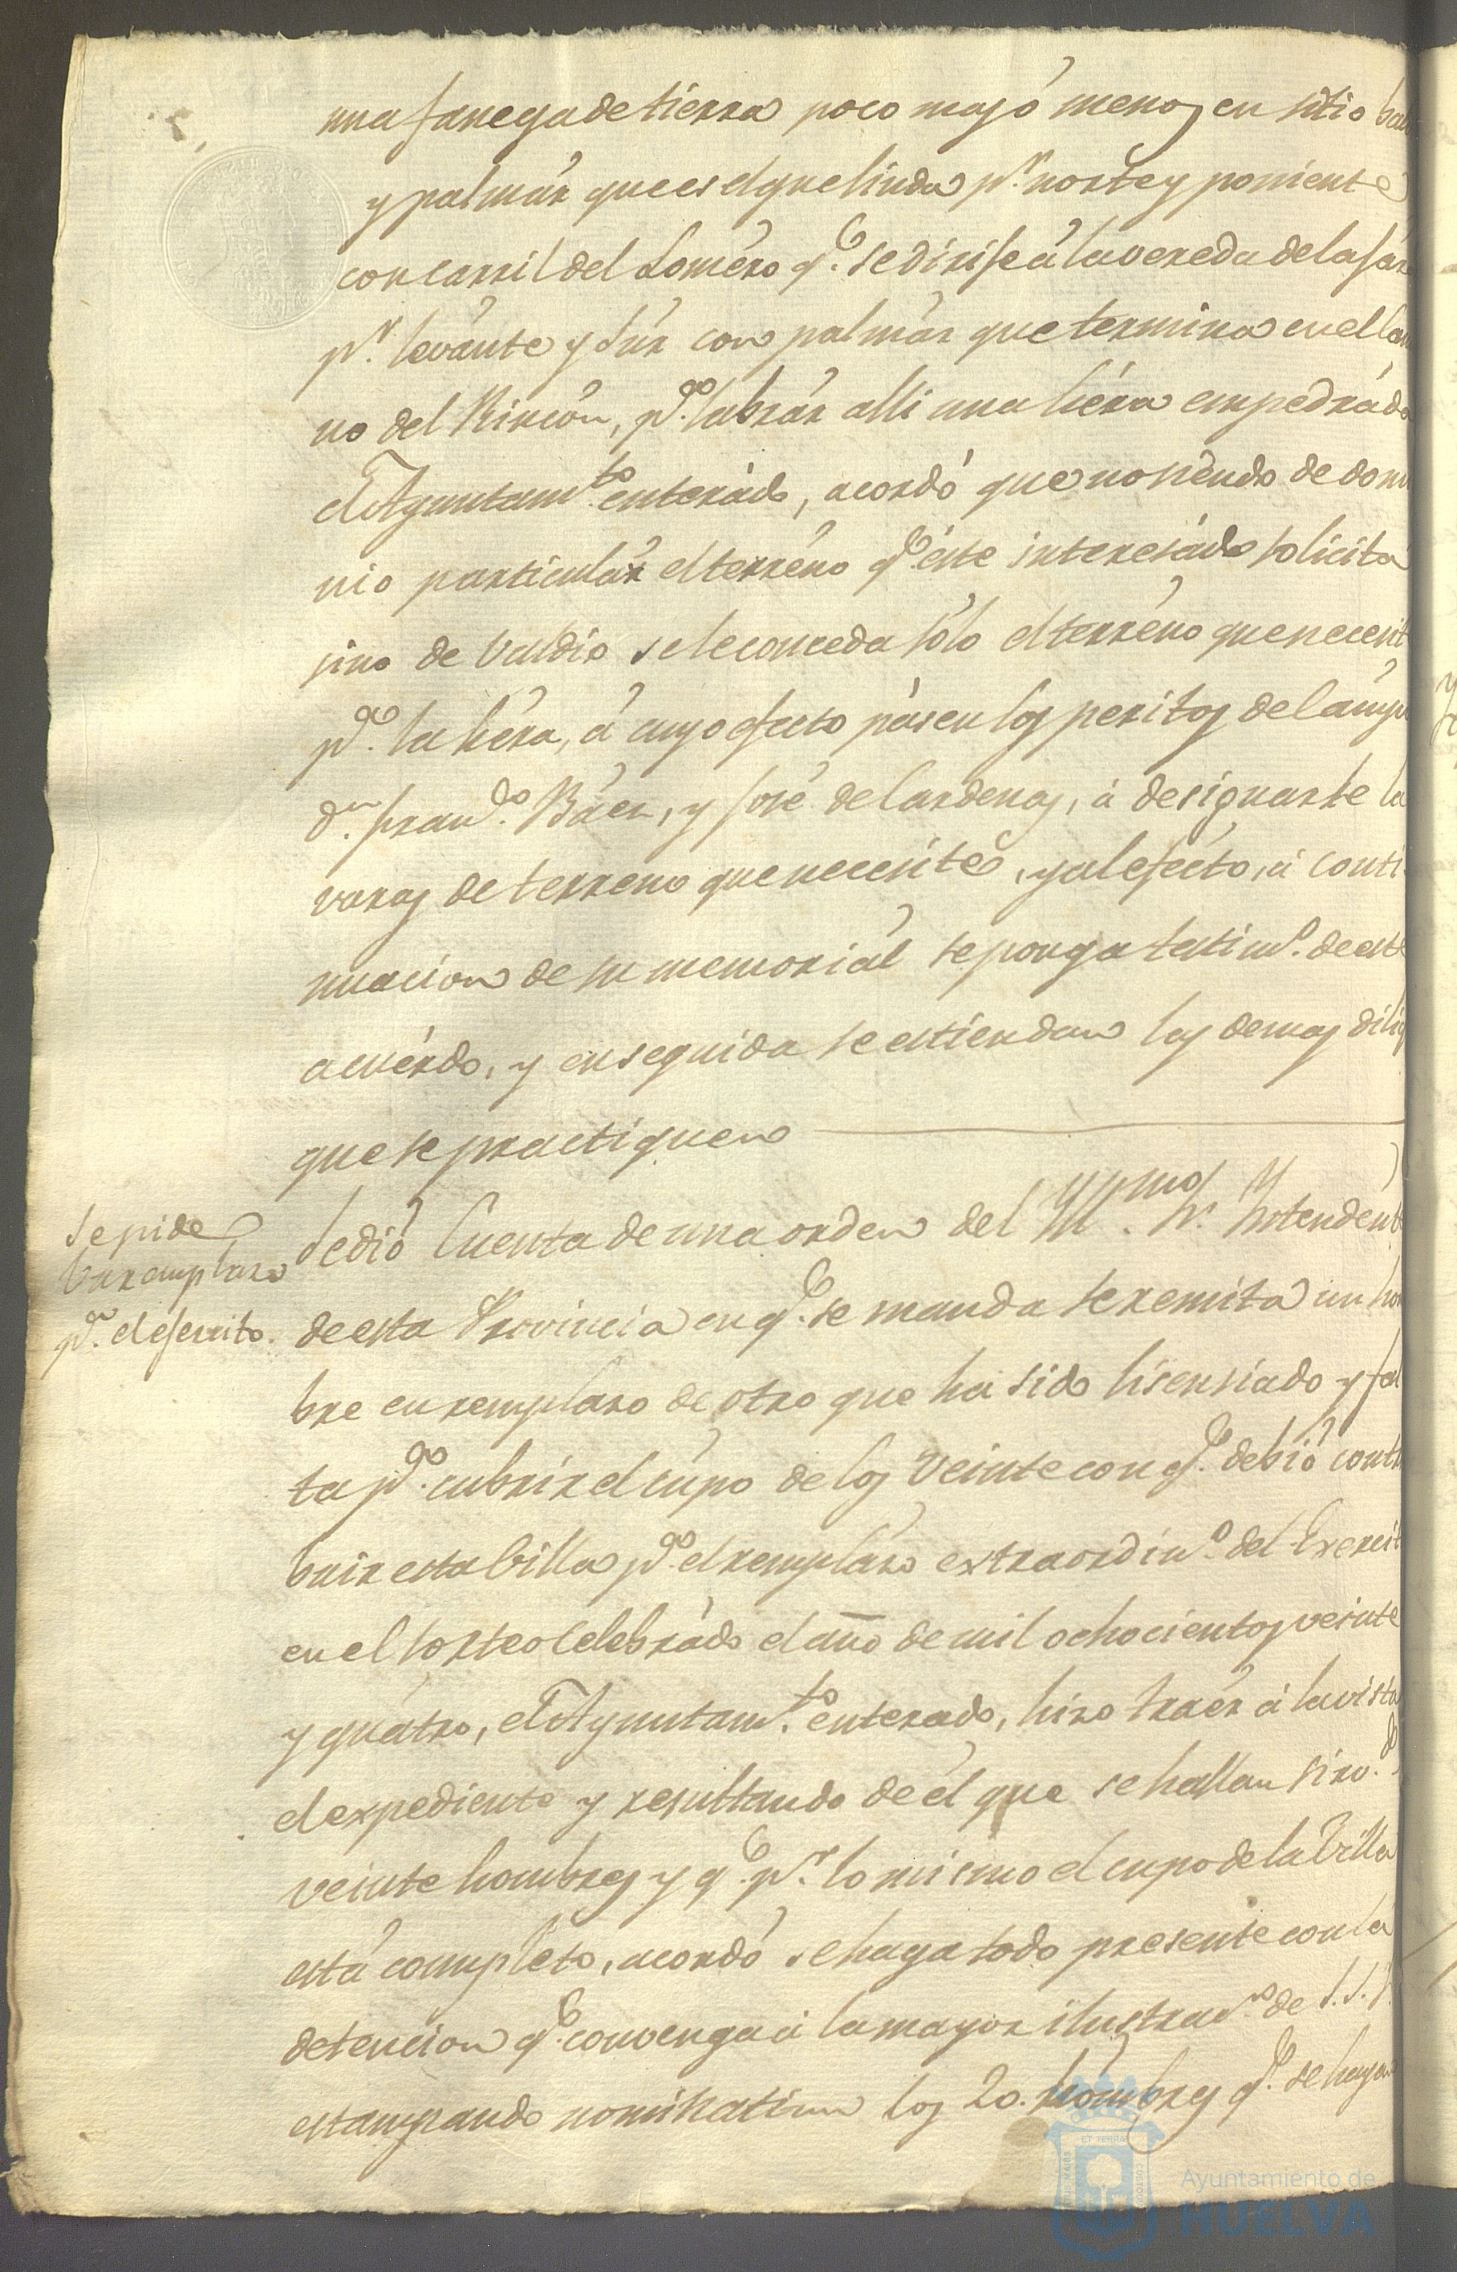 una fanega de tierra poco mas ó menos en sitio
y palmár que es el que linda p.r norte y poniente
con carril del Loméro q.e se dirife á la vereda de la
p.r levánte y Súr con palmár que termina en el
no del Rincón, p.a labrár alli una héra empedráda
El Ayuntam.to enterádo, acordó que no siendo de domi
nio particulár el terréno q.e éste interesádo solicita
sino de Valdio se le conceda sólo el terréno que necesit
p.a la héra, á cuyo efecto pásen los peritos del cámpo
d.n Fran.do Báez, y José de Cardenas, á designarle la
varas de terreno que necesite, y al efécto, á conti
nuacion de su memoriál se ponga testim.o de este
acuérdo, y enseguida se estiendan las demas dilig
que se practiquen
Se pide
un remplazo
p.a el eserito.
Se dió Cuenta de una orden del Yllmo. Sr. Yntendente
de esta Provincia en q.e se manda se remita un hom
bre en remplaso de otro que ha sido lisensiado y fal
ta p.a cubrir el cupo de los Veinte con q.e debió contri
buir esta Villa p.a el remplázo extraordin.o del Exercit
en el sorteo Celebrádo el año de mil ochocientos veinte
y quátro, El Ayuntam.to enterado, hizo traér á la vista
el expediente y resultando de él que se hallan sirv.do
veinte hombres y q.e p.r lo mismo el cupo de la Villa
está compléto, acordó se haga todo presente con la
detencion q.e convenga á la mayor ilustrac.n de S. S. Y.
estampando nominatim los 20. hómbres q.e se hayan
ET TERRA
Ayuntamiento de
HUELVA